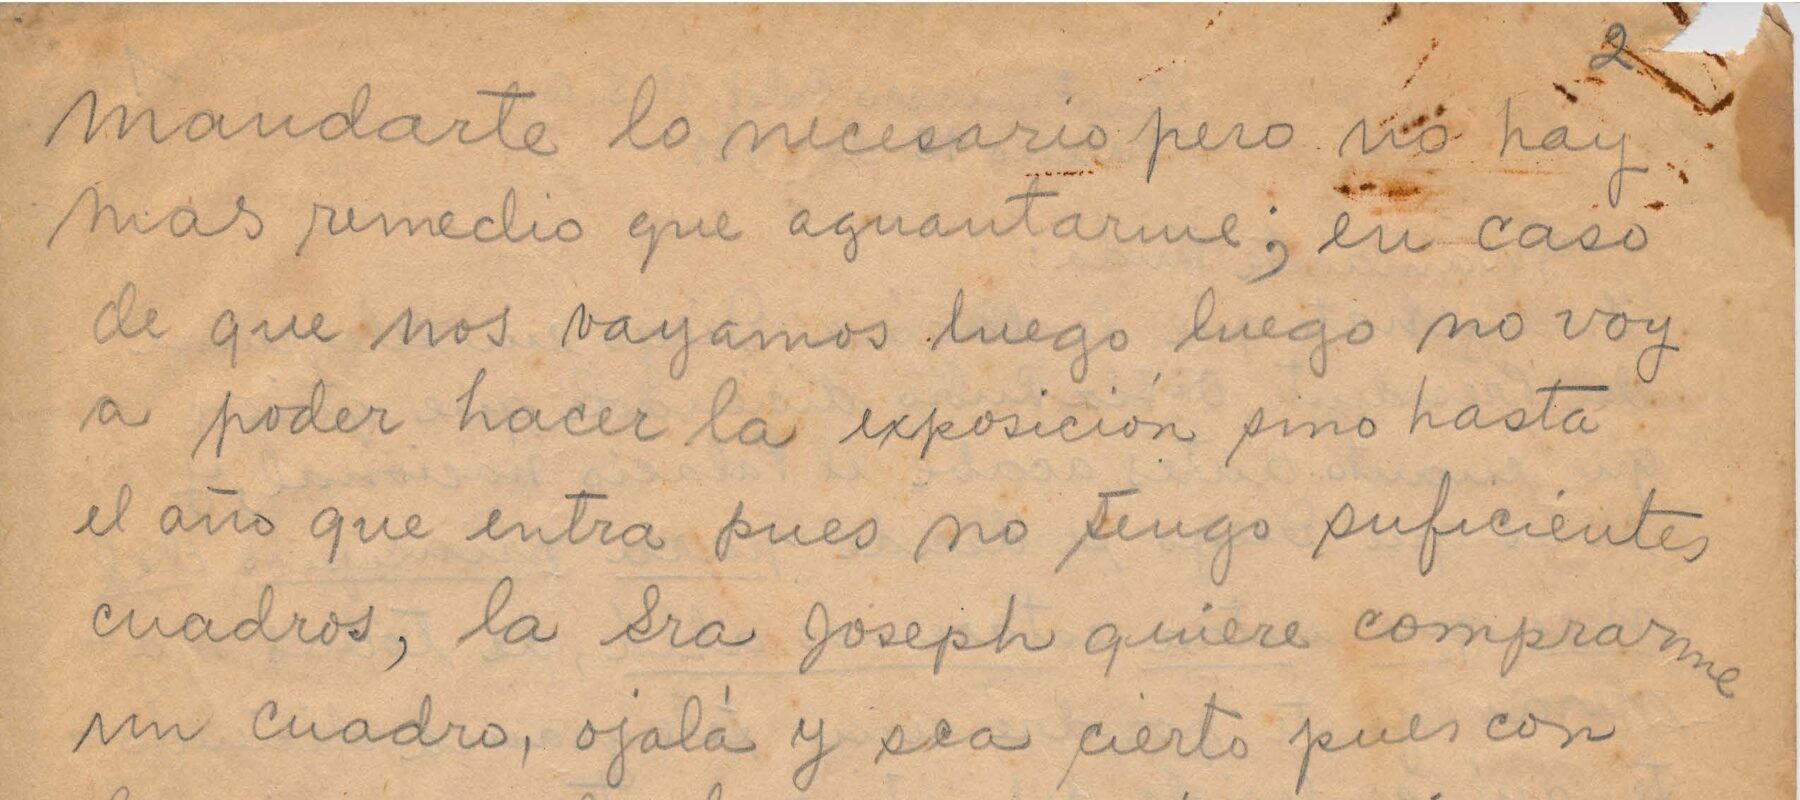 2
mandarte lo necesario pero no hay
mas remedio que aguantarme; en caso
de que nos vayamos luego luego no voy
a poder hacer la exposición sino hasta
el año que entra pues no tengo suficientes
cuadros, la Sra Joseph quiere comprarme
un cuadro, ojalá y sea cierto pues con